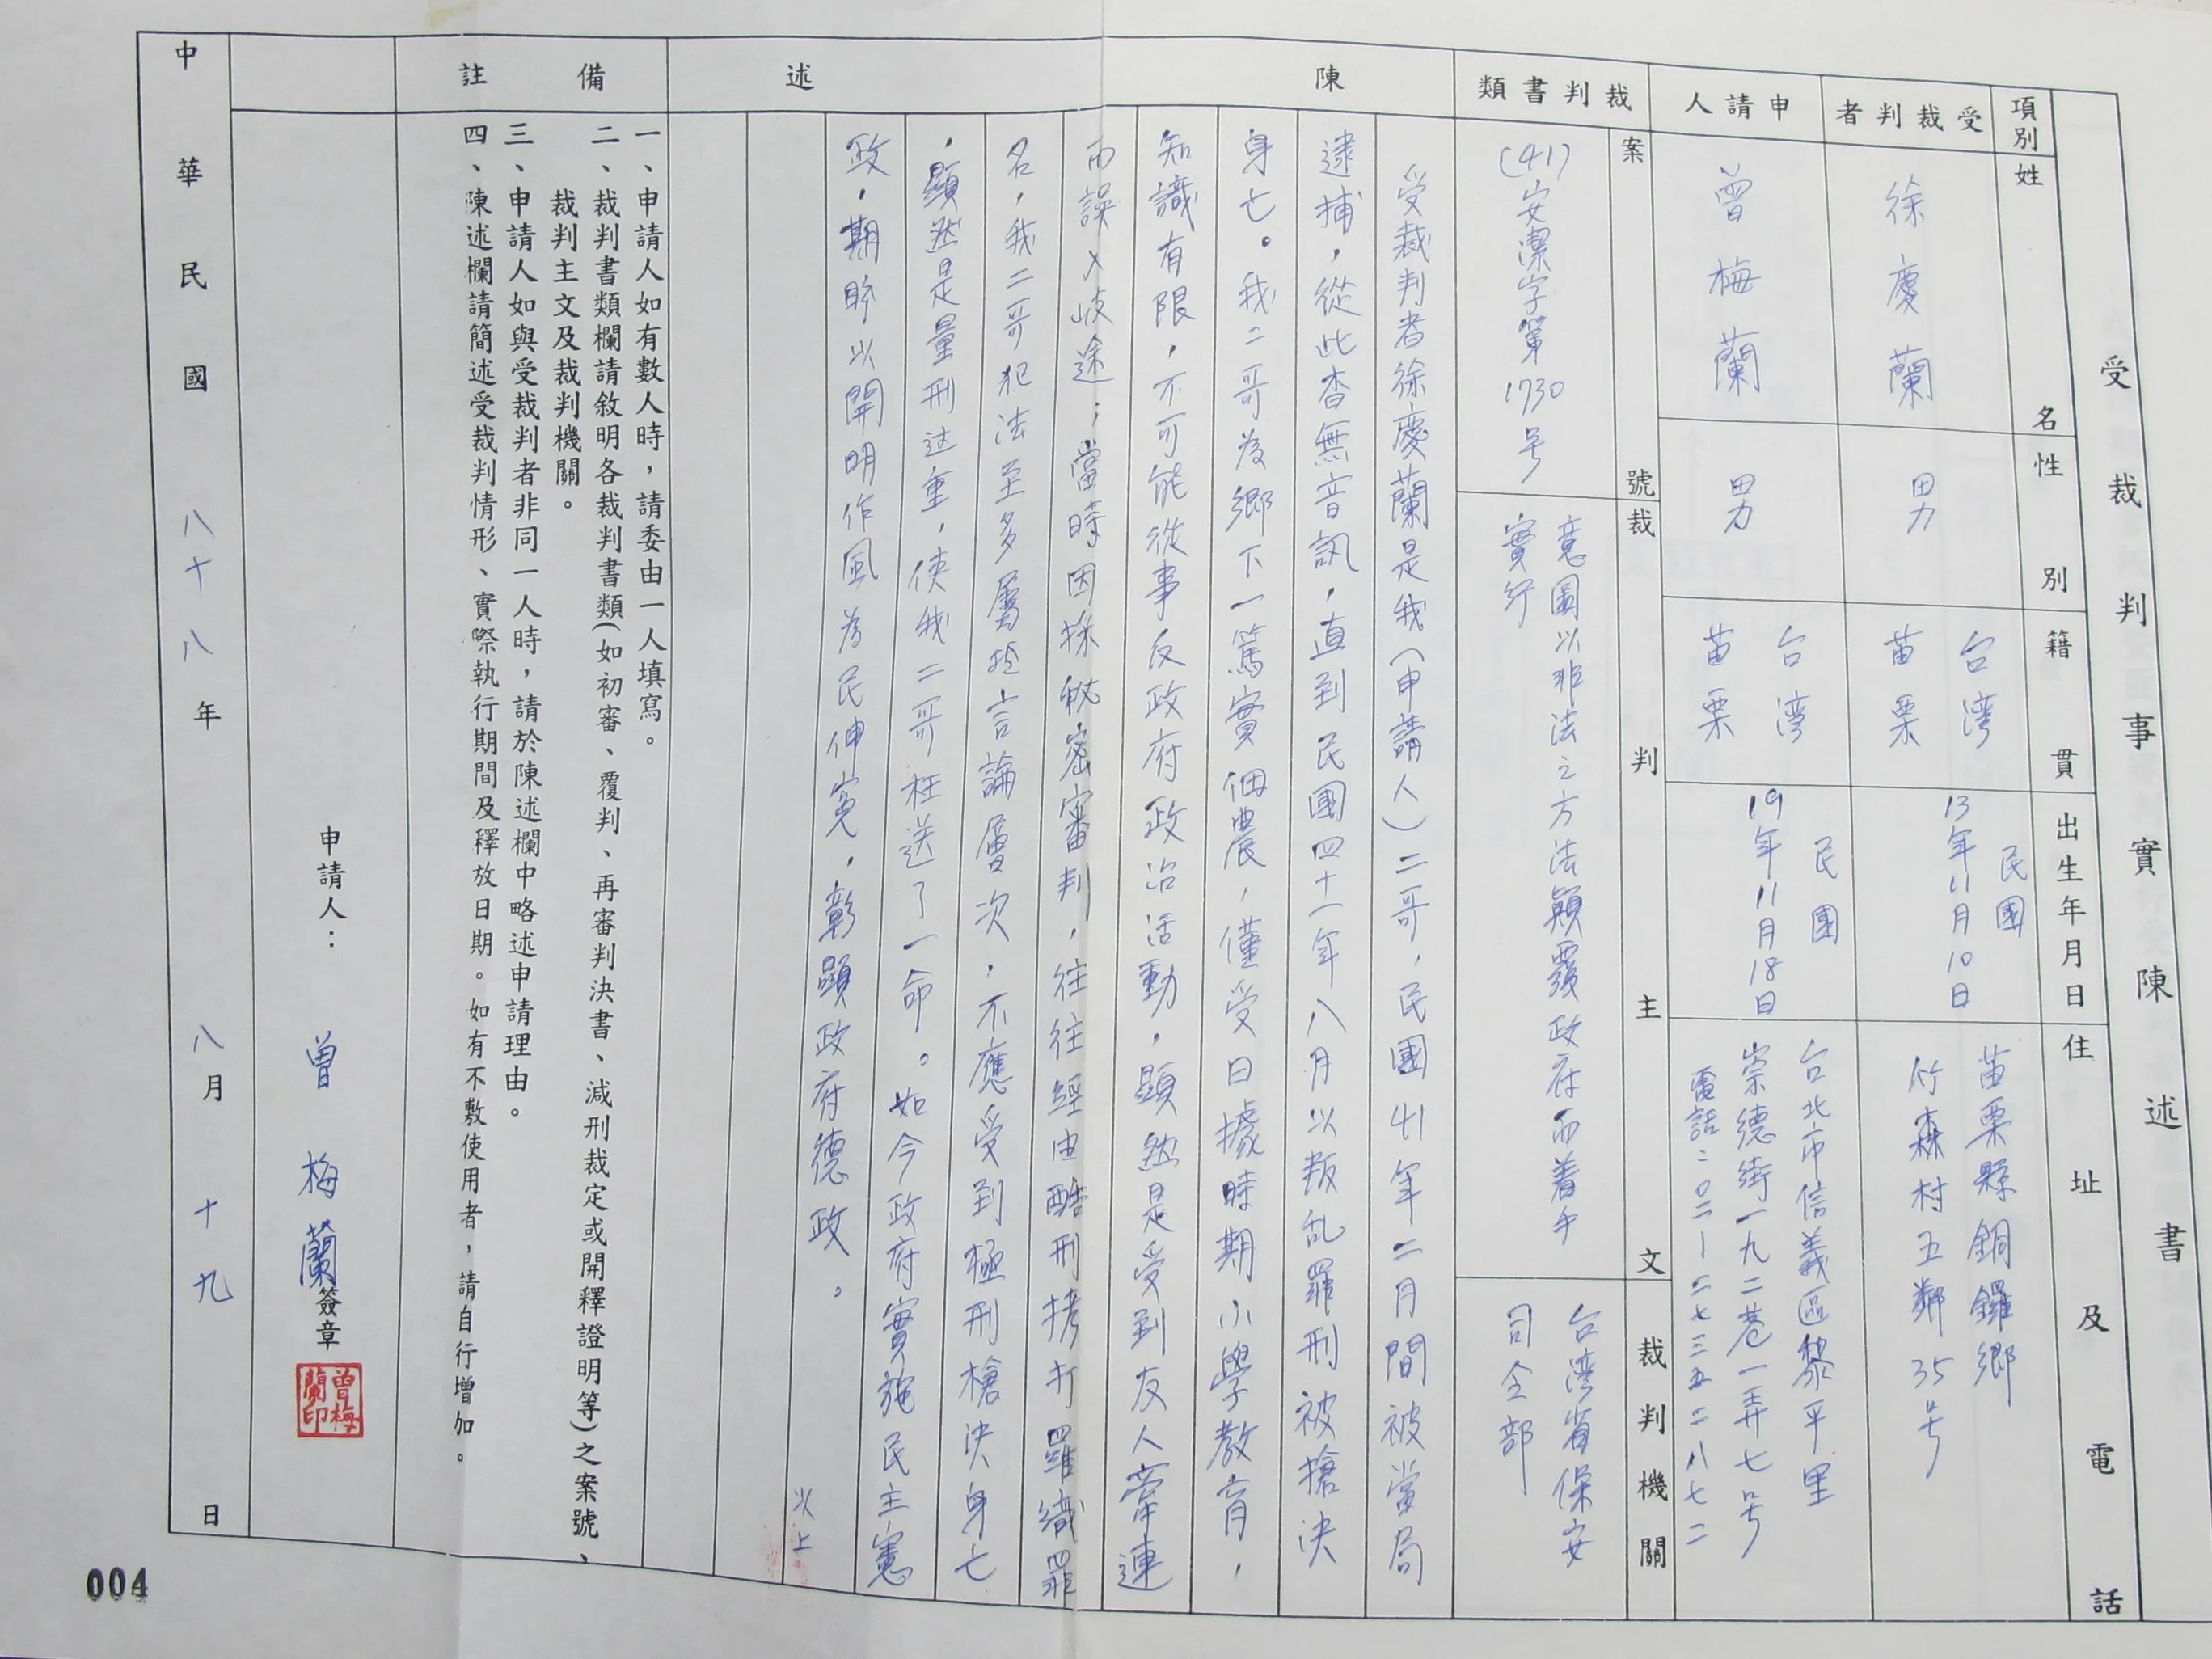 受裁判事實陳述書
項別
姓名
性別
籍貫
出生年月日
住址及電話
受裁判者
徐慶蘭
男
台湾
苗栗
民國
13年11月10日
苗栗縣銅鑼鄉
竹森村五鄰35号
申請人
曾梅蘭
男
台湾
苗栗
民國
19年11月18日
台北市信義區黎平里
崇德街一九二巷一弄七号
電話:〇二-二七三五二八七二
裁判書類
案號
裁判主文
裁判機關
(41)安潔字第1730号
意圖以非法之方法顛覆政府而着手
實行
台湾省保安
司令部
陳述
受裁判者徐慶蘭是我(申請人)二哥,民國41年二月間被當局
逮捕,從此杳無音訊,直到民國四十一年八月以叛乱罪刑被搶決
身亡。我二哥為鄉下一篤實佃農,僅受日據時期小學教育,
知識有限,不可能從事反政府政治活動,顯然是受到友人牽連
而誤入岐途;當時因採秘密審判,往往經由酷刑拷打羅織罪
名,我二哥犯法至多屬於言論層次,不應受到極刑槍決身亡
,顯然是量刑过重,使我二哥枉送了一命。如今政府實施民主憲
政,期盼以開明作風為民伸冤,彰顯政府德政。
以上
備註
一、申請人如有數人時,請委由一人填寫。
二、裁判書類欄請敘明各裁判書類(如初審、覆判、再審判決書、減刑裁定或開釋證明等)之案號、
裁判主文及裁判機關。
三、申請人如與受裁判者非同一人時,請於陳述欄中略述申請理由。
四、陳述欄請簡述受裁判情形、實際執行期間及釋放日期。如有不敷使用者,請自行增加。
申請人: 曾梅蘭 簽章
曾梅蘭印
中華民國 八十八 年 八 月 十九 日
004